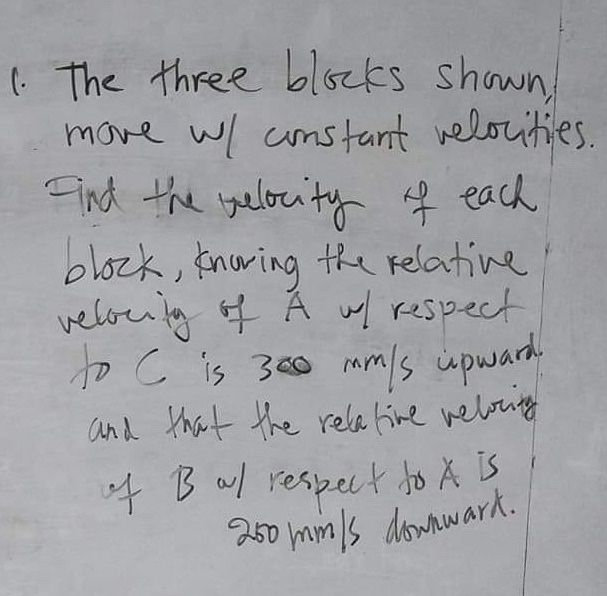 1. The three blocks shown,
move w/ constant velocities.
Find the velocity of each
block, knowing the relative
velocity of A w/ respect
to C is 300 mm/s upward
and that the relative velocity
of B w/ respect to A is
200 mm/s downward.